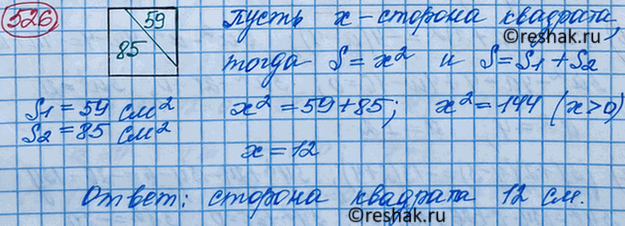 526
59
85
пусть x - сторона квадрата,
тогда S = x² и S = S1 + S2
S1 = 59 см²
S2 = 85 см²
x² = 59 + 85; x² = 144 (x>0)
x = 12
Ответ: сторона квадрата 12 см.
©reshak.ru